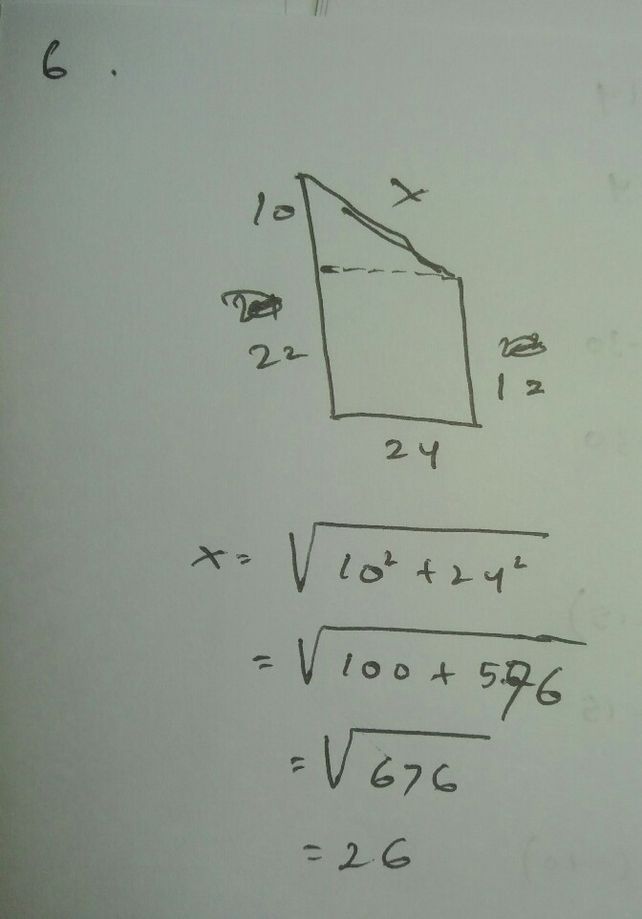 6 .
x
10
22
12
24
x = √10² + 24²
= √100 + 576
= √676
= 26